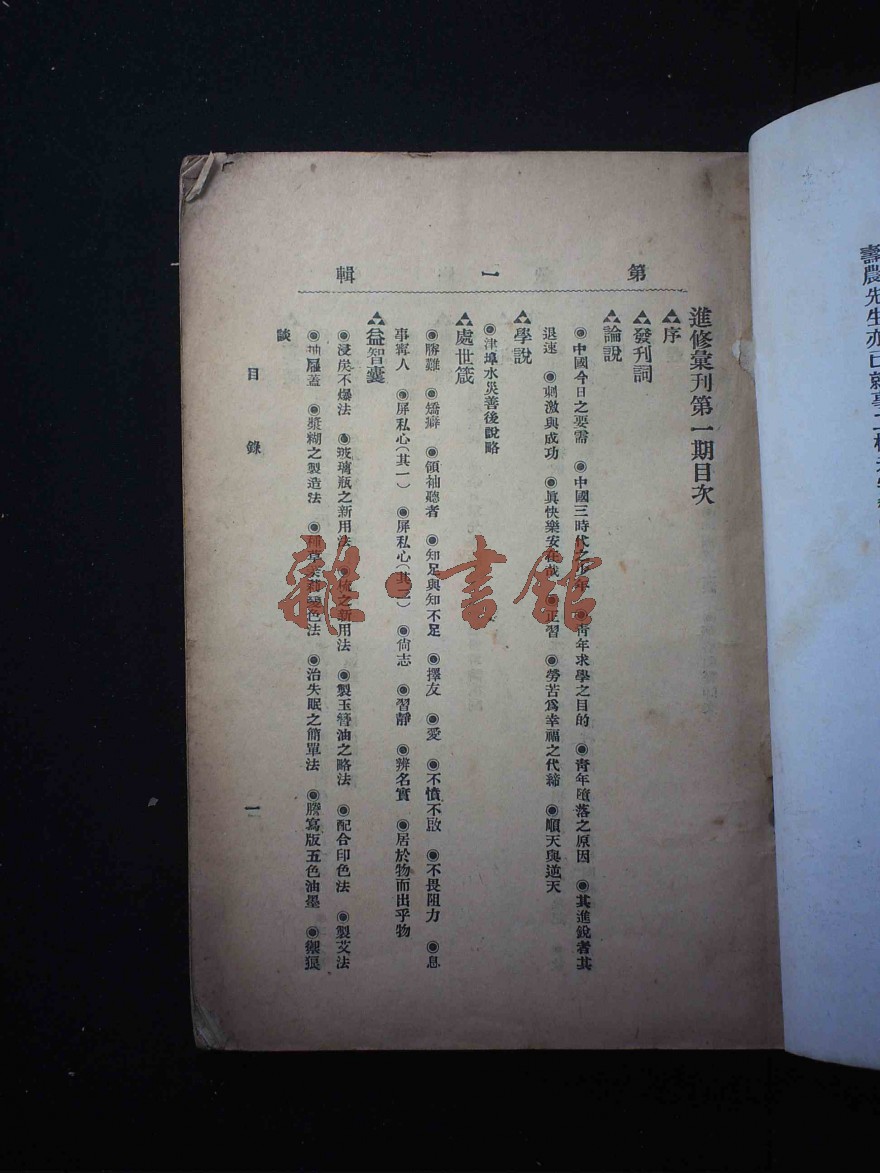 第一輯
進修彙刊第一期目次
序
發刊詞
論說
◉中國今日之要需 ◉中國三時代之少年 ◉靑年求學之目的 ◉靑年墮落之原因 ◉其進銳者其
退速 ◉刺激與成功 ◉眞快樂安在哉 ◉正習 ◉勞苦爲幸福之代締 ◉順天與逆天
學說
◉津埠水災善後說略
處世箴
◉勝難 ◉矯癖 ◉領袖聽者 ◉知足與知不足 ◉擇友 ◉愛 ◉不憤不啟 ◉不畏阻力 ◉息
事寗人 ◉屏私心(其一) ◉屏私心(其二) ◉尙志 ◉習靜 ◉辨名實 ◉居於物而出乎物
益智囊
◉浸炭不爆法 ◉玻璃瓶之新用法 ◉之新用法 ◉製玉簪油之略法 ◉配合印色法 ◉製艾法
◉抽屜蓋 ◉漿糊之製造法 ◉變色法 ◉治失眠之簡單法 ◉謄寫版五色油墨 ◉禦狼
談
目錄
一
壽農先生亦已就事
雜·書館